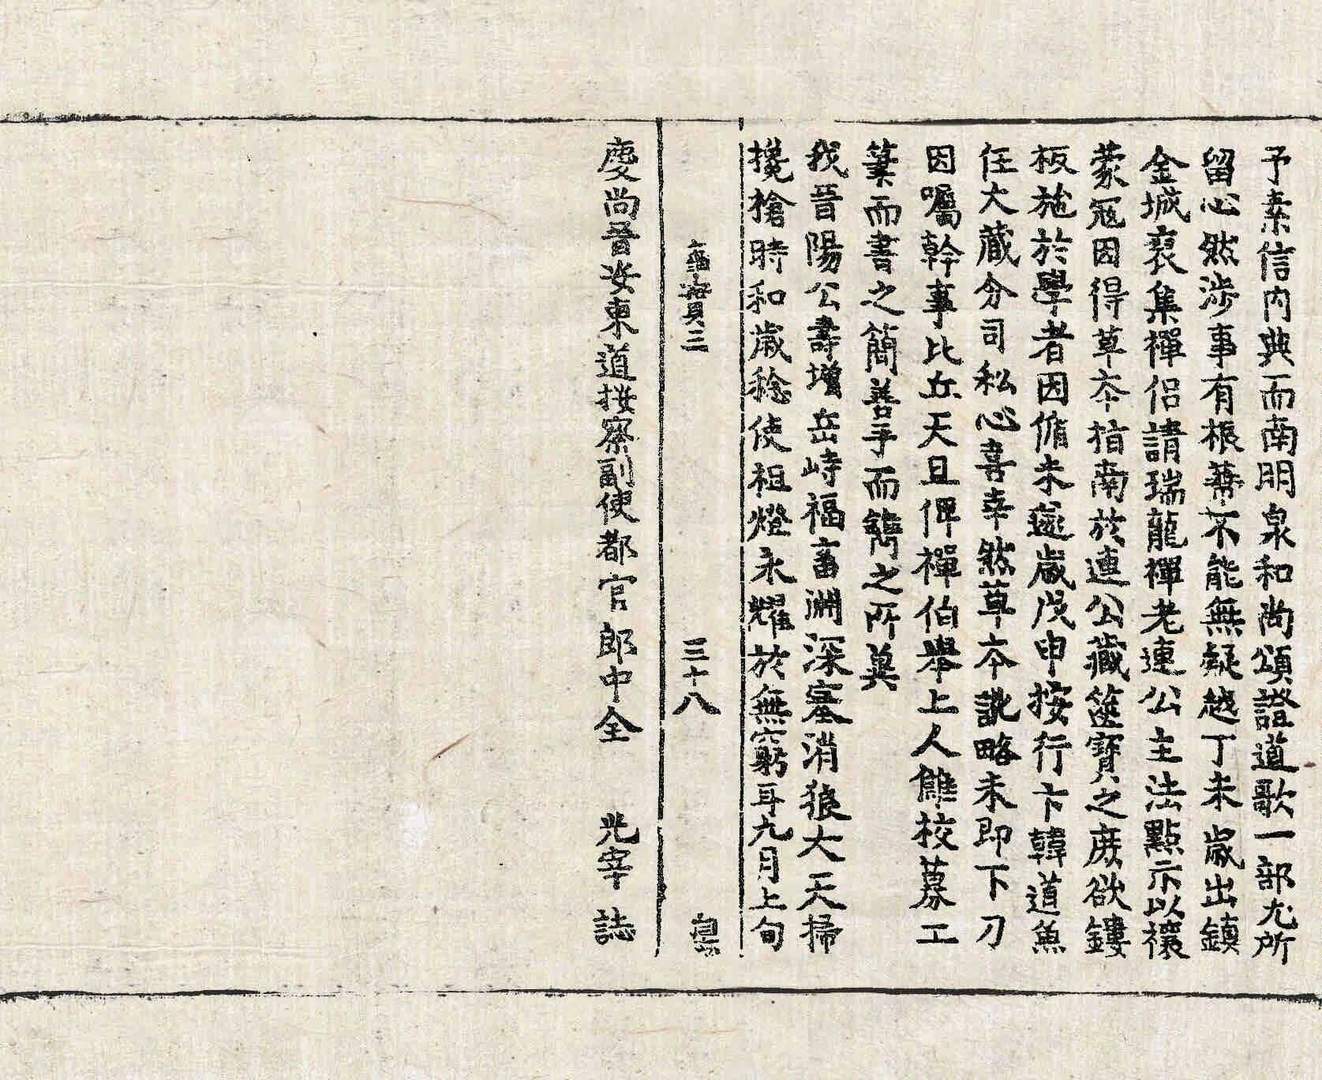 予素信內典而南明泉和尚頌證道歌一部尤所
留心然涉事有棖不能無疑越丁未歲出鎭
金城裒集禪侶請瑞龍禪老連公主法點示以禳
蒙冦因得草夲指南於連公藏篋寶之庶欲鏤
板施於學者因循未遂歲戊申按行卞韓道兼
任大藏分司私心喜幸然草夲訛略未即下刀
因囑幹事比丘天旦俾禪伯擧上人讎校募工
筆而書之簡善手而鐫之所兾
我晉陽公壽增岳峙福畜淵深塞消狼大天掃
攙搶時和歲稔使祖燈永耀於無窮耳九月上旬
事實三 三十八
慶尚晉安東道按察副使都官郎中全 光宰 誌